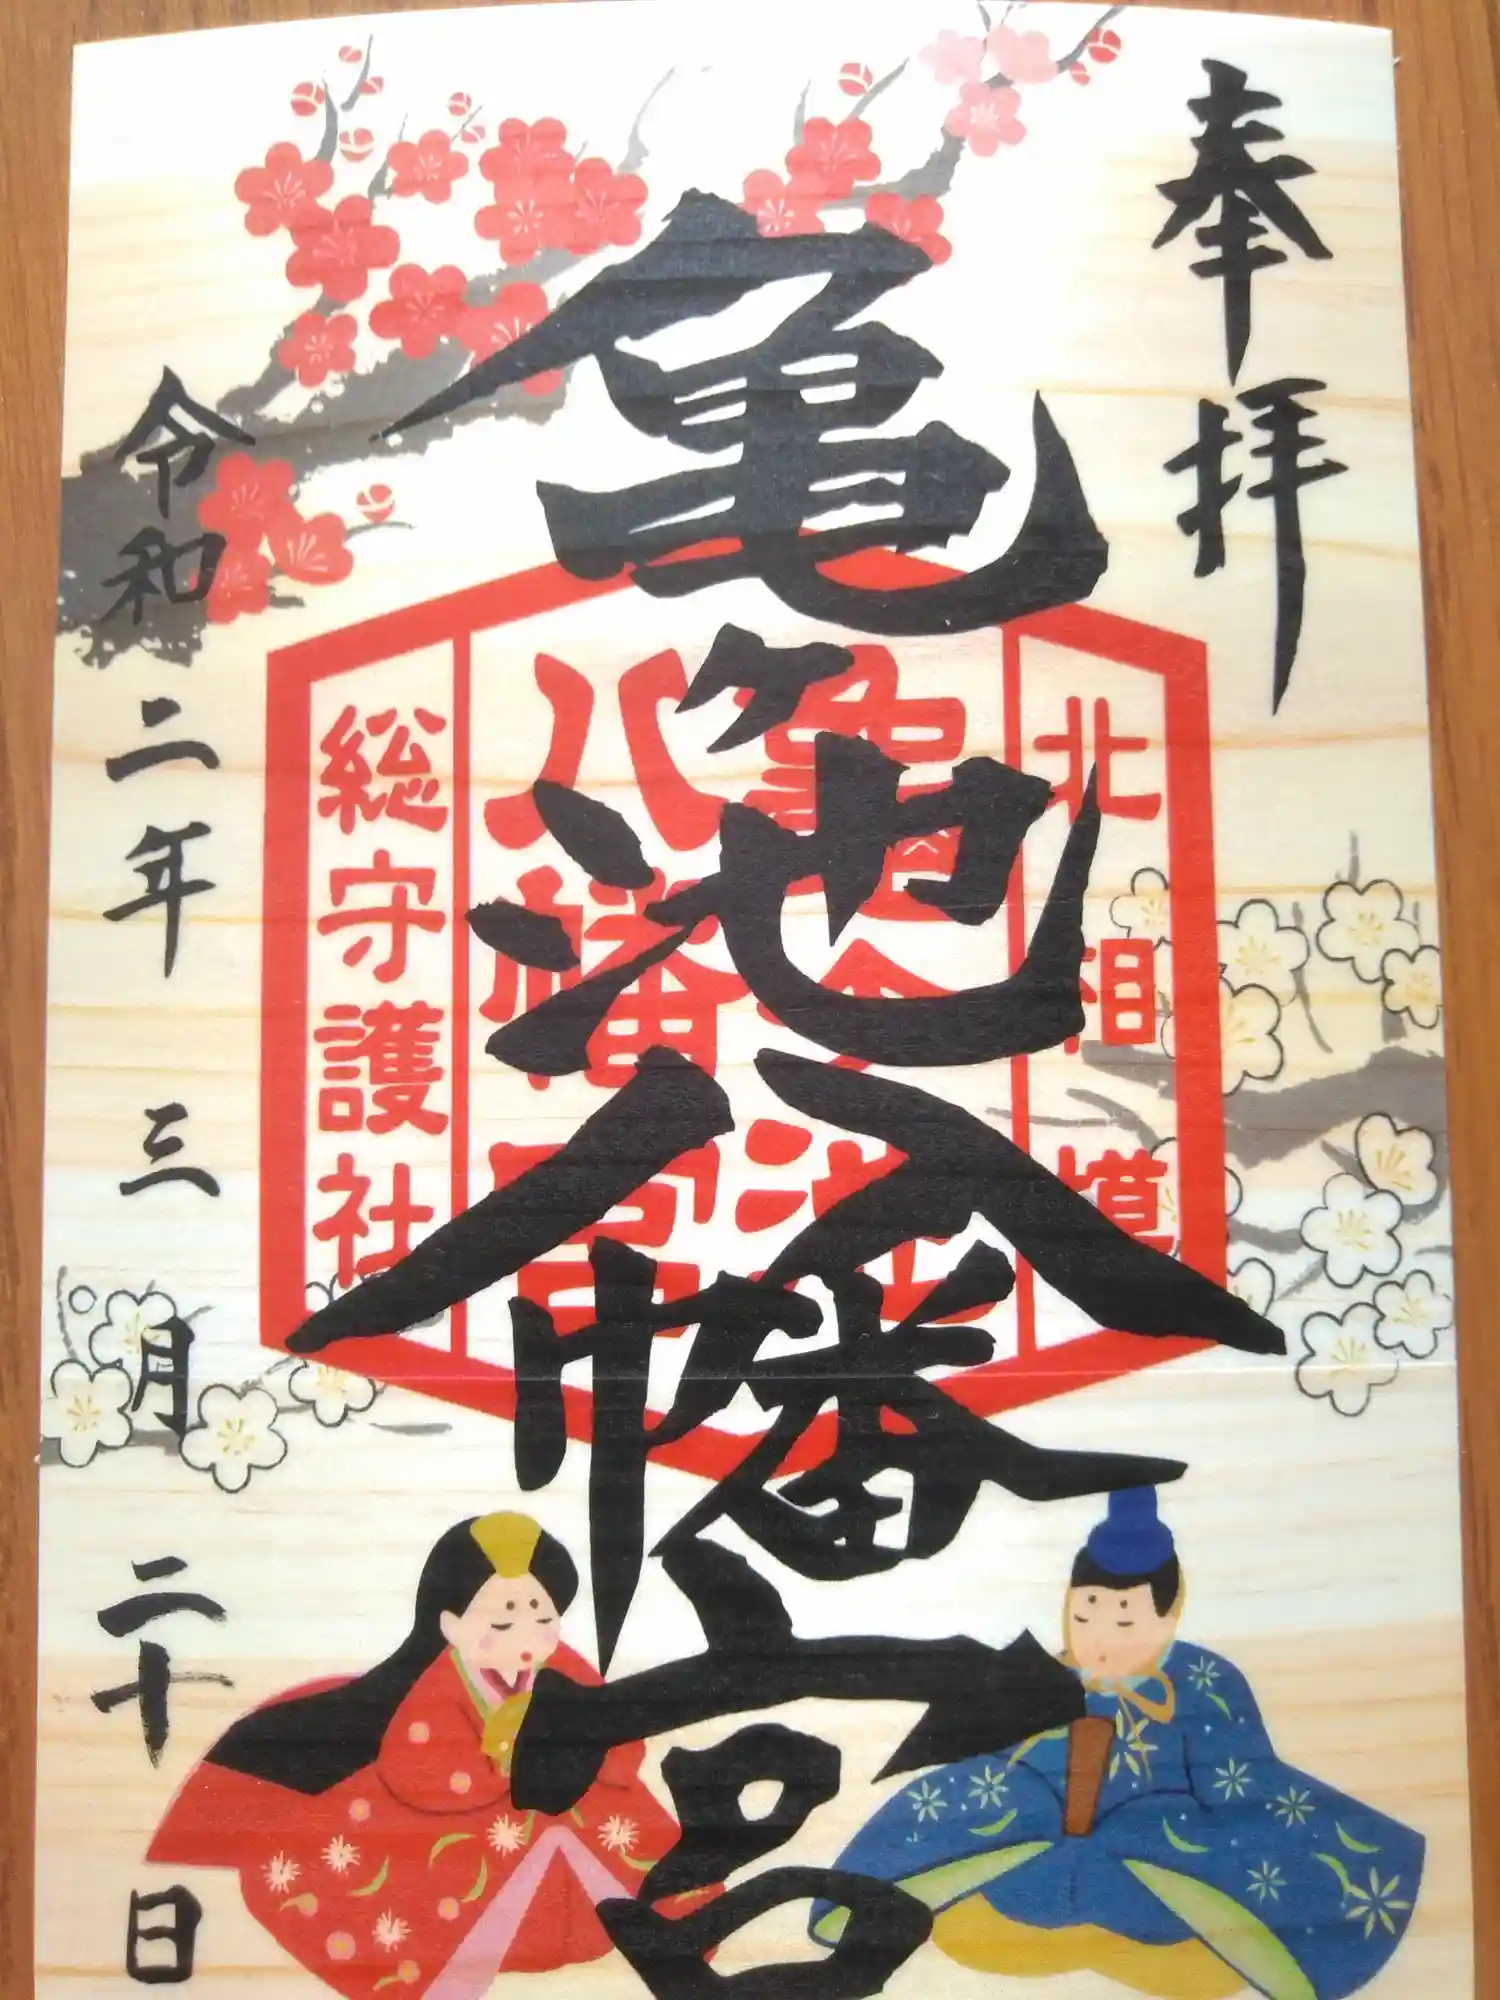 奉拝
北相模
亀ヶ池
八幡宮
総守護社
亀ヶ池八幡宮
令和二年三月二十日